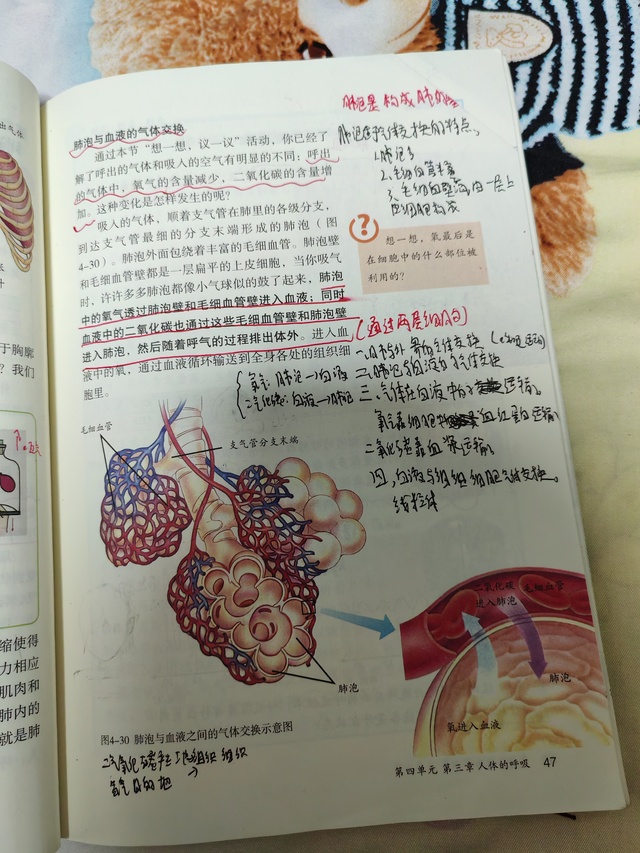 肺泡是构成肺的
肺泡与血液的气体交换
通过本节“想一想，议一议”活动，你已经了
解了呼出的气体和吸入的空气有明显的不同：呼出
的气体中，氧气的含量减少，二氧化碳的含量增
加。这种变化是怎样发生的呢？
吸入的气体，顺着支气管在肺里的各级分支，
到达支气管最细的分支末端形成的肺泡（图
4-30）。肺泡外面包绕着丰富的毛细血管。肺泡壁
和毛细血管壁都是一层扁平的上皮细胞，当你吸气
时，许许多多肺泡都像小气球似的鼓了起来，肺泡
中的氧气透过肺泡壁和毛细血管壁进入血液；同时
血液中的二氧化碳也通过这些毛细血管壁和肺泡壁
进入肺泡，然后随着呼气的过程排出体外。进入血
液中的氧，通过血液循环输送到全身各处的组织细
胞里。
肺泡 气体交换的特点
1.肺泡多
2.毛细血管丰富
3. 毛细血 由一层上
皮细胞构成
?
想一想，氧最后是
在细胞中的什么部位被
利用的？
（通过两层细胞）
一.肺与外界气体交换（呼吸运动）
二.肺泡与血液的气体交换
三.气体在血液中的运输。
氧气 血红蛋白运输
二氧化碳靠血浆运输。
四.血液与组织细胞气体交换。
线粒体
氧气：肺泡→血液
二氧化碳：血液→肺泡
毛细血管
支气管分支末端
肺泡
二氧化碳
进入肺泡
毛细血管
肺泡
氧进入血液
图4-30 肺泡与血液之间的气体交换示意图
二氧化碳 组织
氧气
第四单元 第三章 人体的呼吸 47
出气体
于胸廓
？我们
缩使得
力相应
肌肉和
肺内的
就是肺